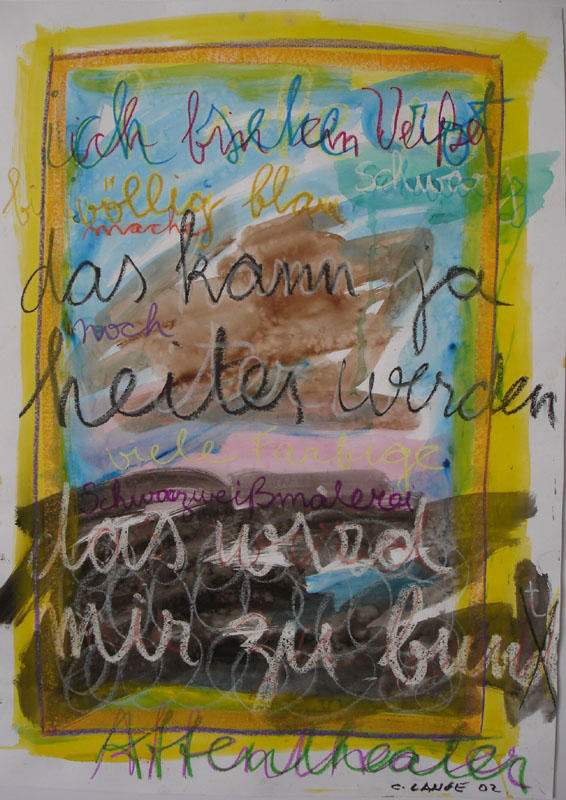 ich bin kein
bin völlig blau schwarz
macht
das kann ja
noch
heiter werden
viele Farbige
Schwarzweißmalerei
das wird
mir zu bunt
Affentheater
C. LANGE 02